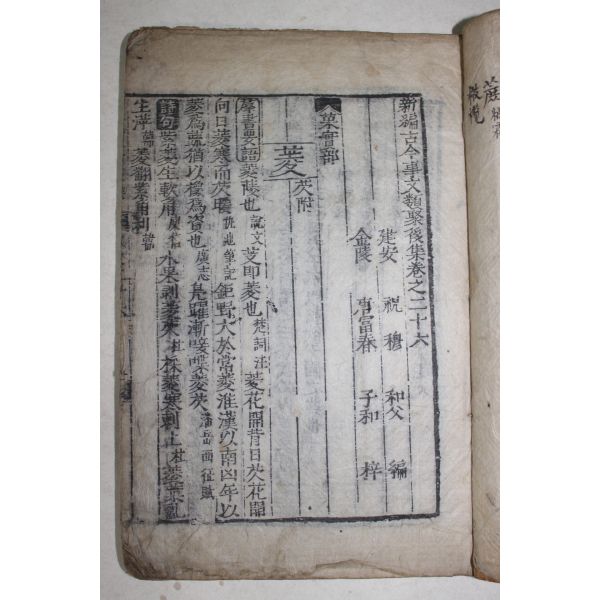 新編古今事文類聚後集卷之二十六
建安 祝 穆 和父 編
金陵 唐富春 子和 梓
菓實部
菱 芡附
羣書要語菱蔆也 說文 芰即菱也 楚詞注 菱花開背日芡花開
向日菱寒而芡暖 鉅野大於常菱淮漢以南凶年以
菱爲蔬猶以橡爲資也 廣志 鳧躍漸唼喋菱芡 潘岳西征賦
詩句紫菱生軟角 水果剥菱芡 杜 採菱寒刺上 杜 菱葉亂
生萍 菱翻紫角利